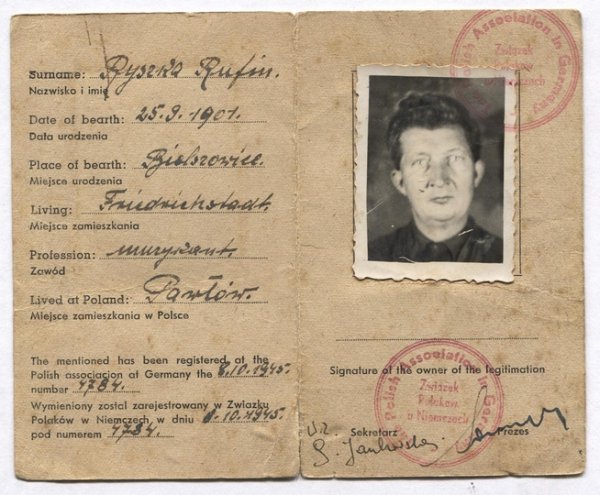 Surname: Ryszka Rufin.
Nazwisko i imię
Date of bearth: 25.9.1901.
Data urodzenia
Place of bearth: Bielszowice.
Miejsce urodzenia
Living: Friedrichstadt.
Miejsce zamieszkania
Profession: muzykant.
Zawód
Lived at Poland: Pawłów.
Miejsce zamieszkania w Polsce
The mentioned has been registered at the
Polish associacion at Germany the 8.10.1945.
number 4784.
Wymieniony został zarejestrowany w Związku
Polaków w Niemczech w dniu 8.10.1945.
pod numerem 4784.
Polish Association in Germany
Związek
Polaków
w Niemczech
Signature of the owner of the legitimation
Polish Association in Germany
Związek
Polaków
w Niemczech
Sekretarz Prezes
S. Jankowski